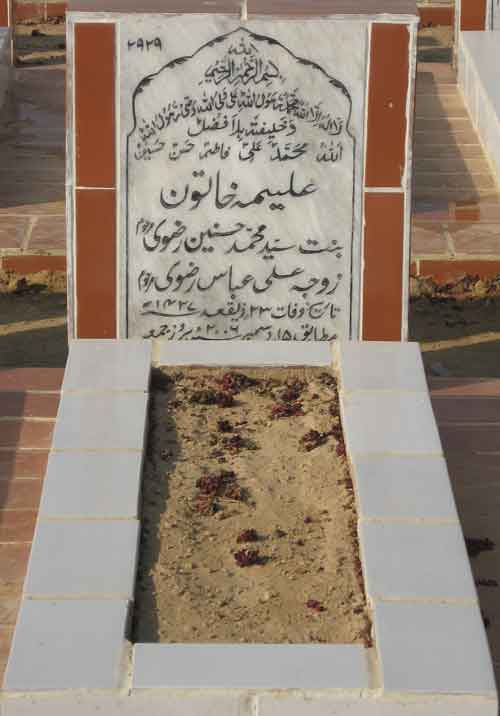 ۲۹۲۹
بسم اللہ الرحمن الرحیم
لا الہ الا اللہ محمد رسول اللہ علی ولی اللہ وصی رسول اللہ
وخلیفتہ بلا فصل
اللہ محمد علی فاطمہ حسن حسین
علیمہ خاتون
بنت سید محمد حسنین رضوی مرحوم
زوجہ علی عباس رضوی مرحوم
تاریخ وفات ۲۳ ذیقعد ۱۴۲۷ھ
مطابق ۱۵ دسمبر ۲۰۰۶ بروز جمعہ